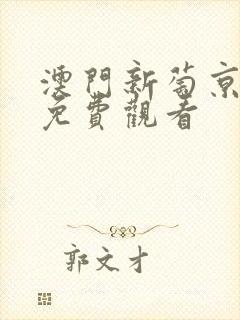 澳門新萄京
免費觀看
郭文才